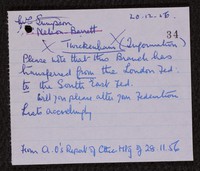 Simpson 20.12.56
X Nelson-Barrett 34
X Twickenham (Information)
Please note that this Branch has
transferred from the London Fed.
to the South East Fed.
Will you please alter your Federation
lists accordingly
From A.O's Report of Ctee Mtg of 28.11.56